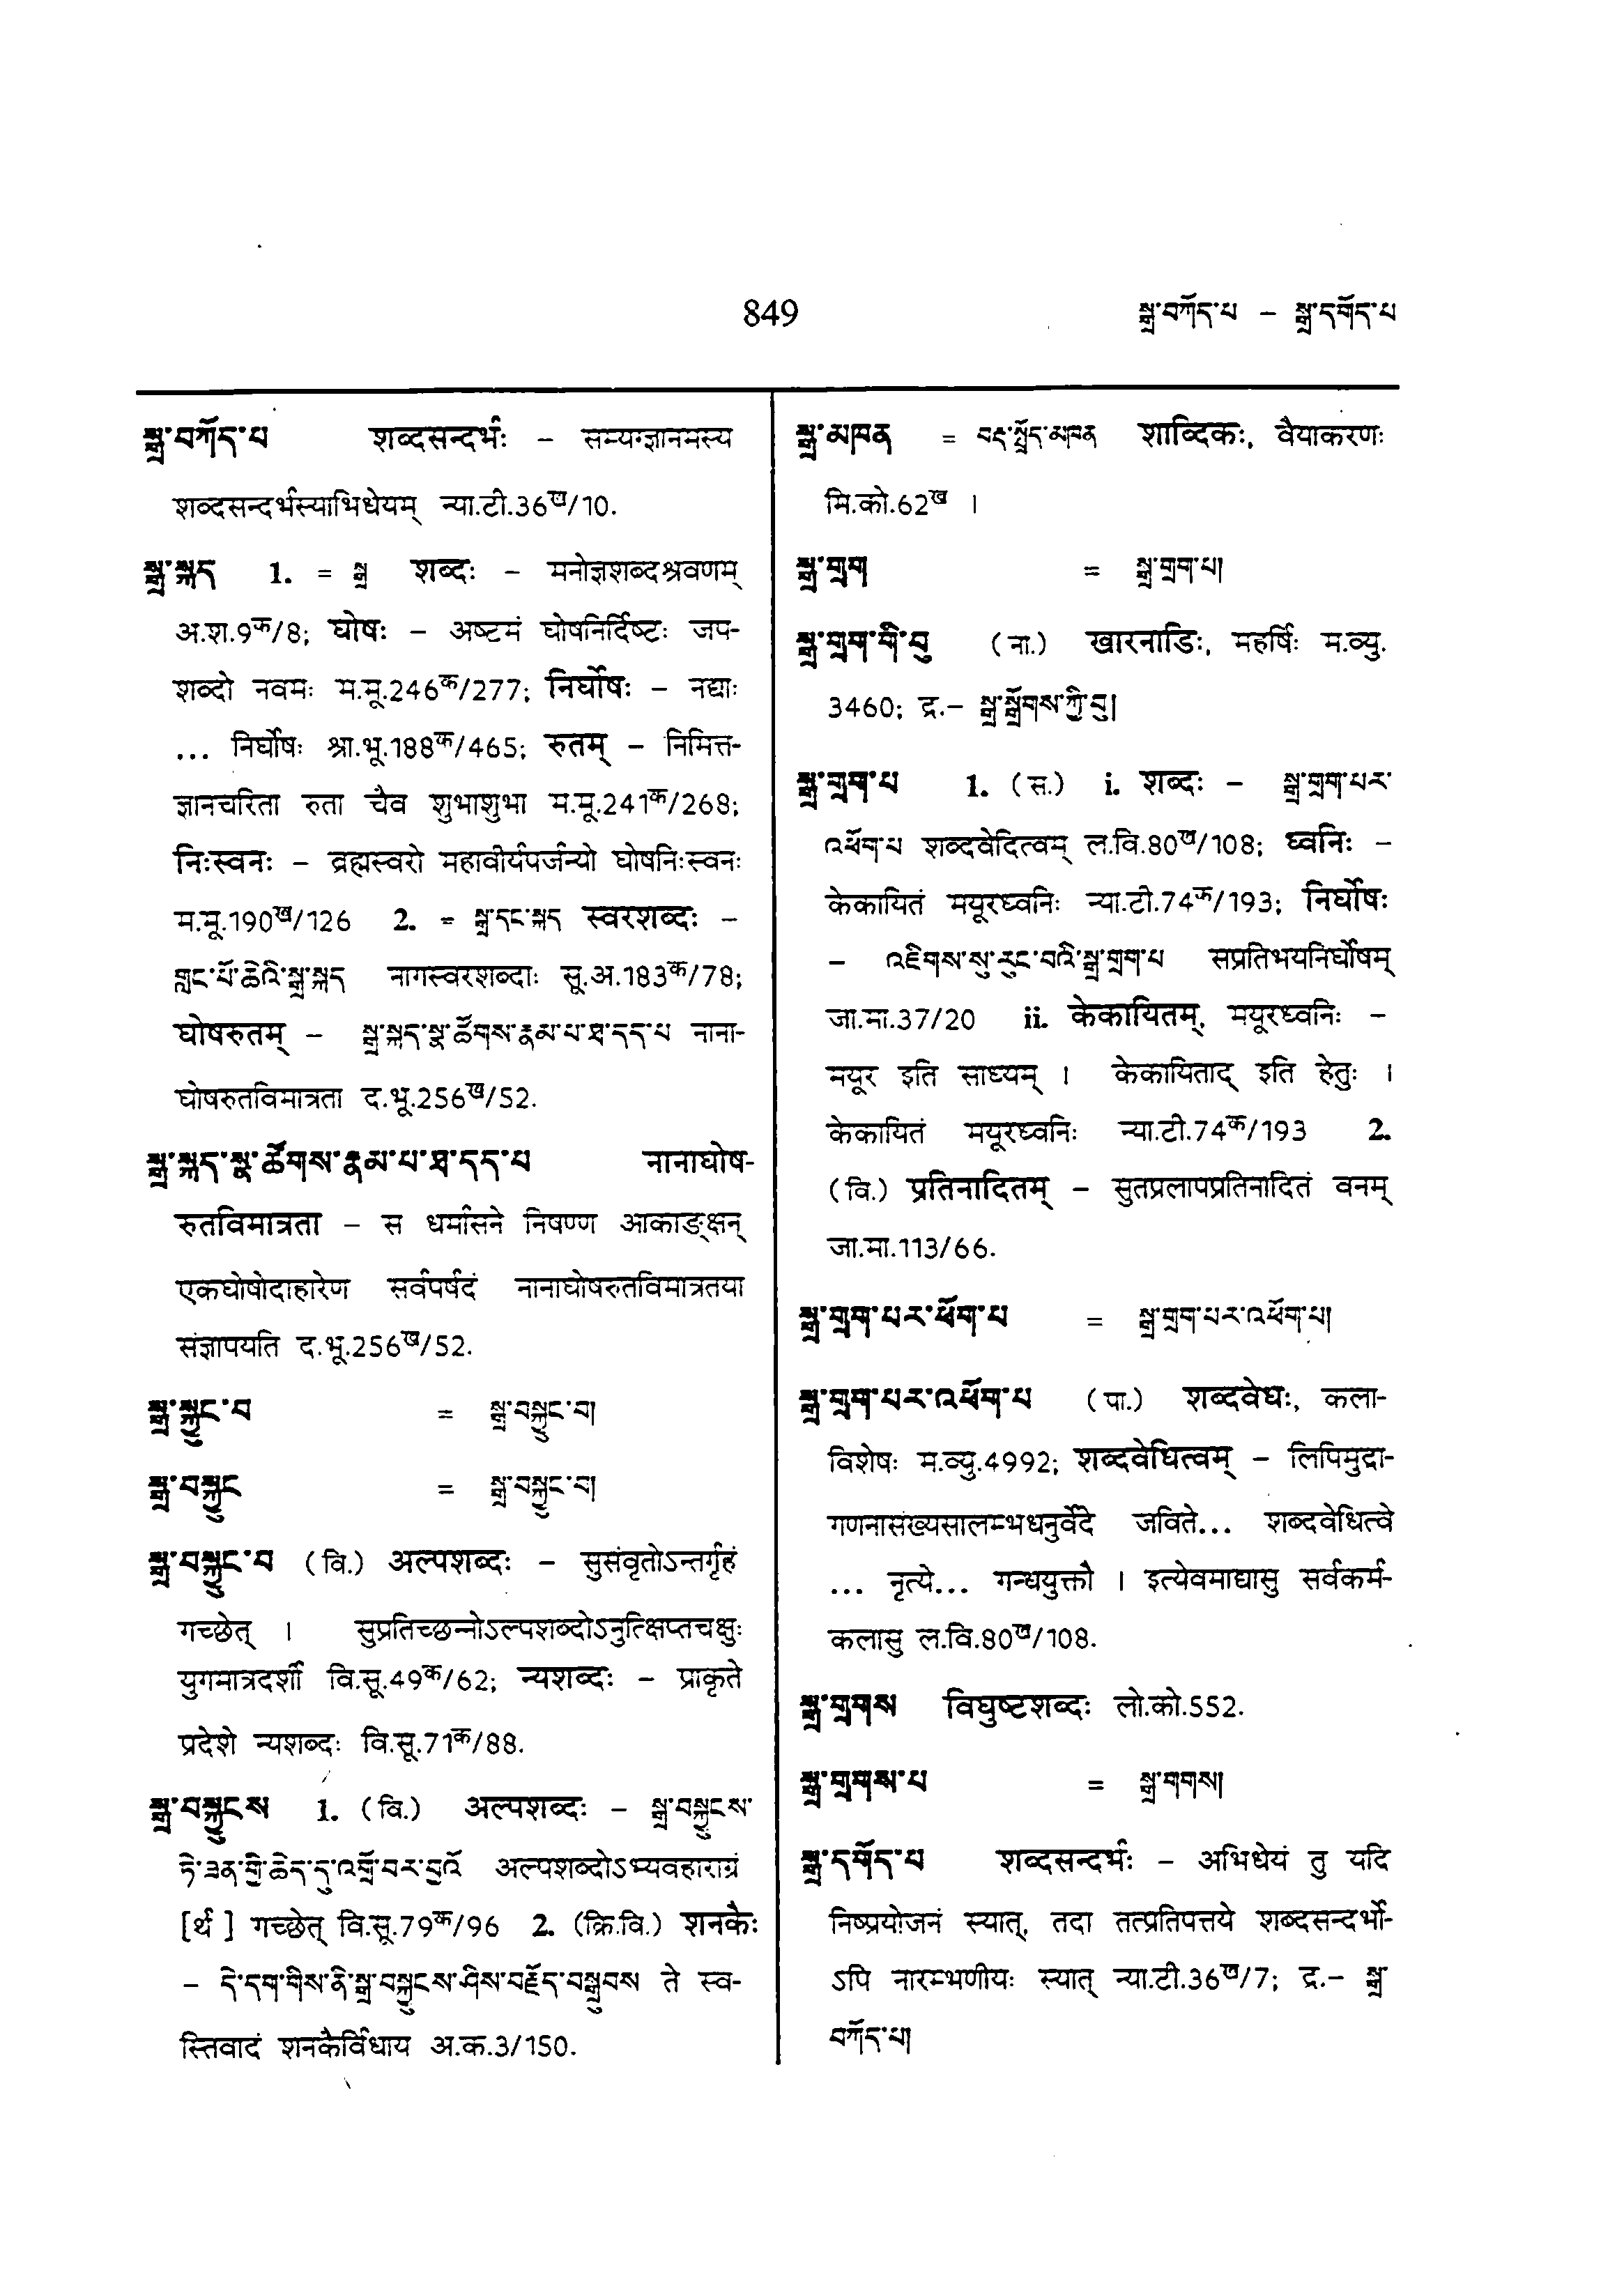 849
སྒྲ་བཀོད་པ – སྒྲ་དགོད་པ
སྒྲ་བཀོད་པ शब्दसन्दर्भः – सम्यग्ज्ञानमस्य
शब्दसन्दर्भस्याभिधेयम् न्या.टी.36ख/10.
སྒྲ་སྐད 1. = སྒྲ शब्दः – मनोज्ञशब्दश्रवणम्
अ.श.9क/8; घोषः – अष्टमं घोषनिर्दिष्टः जप-
शब्दो नवमः म.मू.246क/277; निर्घोषः – नद्याः
... निर्घोषः श्रा.भू.188क/465; रुतम् – निमित्त-
ज्ञानचरिता रुता चैव शुभाशुभा म.मू.241क/268;
निःस्वनः – ब्रह्मस्वरो महावीर्यपर्जन्यो घोषनिःस्वनः
म.मू.190ख/126 2. = སྒྲ་དང་སྐད स्वरशब्दः –
གླང་པོ་ཆེའི་སྒྲ་སྐད नागस्वरशब्दाः सू.अ.183क/78;
घोषरुतम् – སྒྲ་སྐད་སྣ་ཚོགས་རྣམ་པ་ཐ་དད་པ नाना-
घोषरुतविमात्रता द.भू.256ख/52.
སྒྲ་སྐད་སྣ་ཚོགས་རྣམ་པ་ཐ་དད་པ नानाघोष-
रुतविमात्रता – स धर्मासने निषण्ण आकाङ्क्षन्
एकघोषोदाहारेण सर्वपर्षदं नानाघोषरुतविमात्रतया
संज्ञापयति द.भू.256ख/52.
སྒྲ་སྐྱུང་བ = སྒྲ་བསྐྱུང་བ།
སྒྲ་བསྐྱུང = སྒྲ་བསྐྱུང་བ།
སྒྲ་བསྐྱུང་བ (वि.) अल्पशब्दः – सुसंवृतोऽन्तर्गृहं
गच्छेत् । सुप्रतिच्छन्नोऽल्पशब्दोऽनुत्क्षिप्तचक्षुः
युगमात्रदर्शी वि.सू.49क/62; न्यशब्दः – प्राकृते
प्रदेशे न्यशब्दः वि.सू.71क/88.
སྒྲ་བསྐྱུངས 1. (वि.) अल्पशब्दः – སྒྲ་བསྐྱུངས་
ཏེ་ཟན་གྱི་ཆེད་དུ་འགྲོ་བར་བྱའོ अल्पशब्दोऽभ्यवहाराग्रं
[र्थ] गच्छेत् वि.सू.79क/96 2. (क्रि.वि.) शनकैः
– དེ་དག་གིས་ནི་སྒྲ་བསྐྱུངས་ཤིས་བརྗོད་བསྒྲུབས ते स्व-
स्तिवादं शनकैर्विधाय अ.क.3/150.
སྒྲ་མཁན = བརྡ་སྤྲོད་མཁན शाब्दिकः, वैयाकरणः
मि.को.62ख ।
སྒྲ་གྲག = སྒྲ་གྲག་པ།
སྒྲ་གྲག་གི་བུ (ना.) खारनाडिः, महर्षिः म.व्यु.
3460; द्र.– སྒྲ་སྒྲོགས་ཀྱི་བུ།
སྒྲ་གྲག་པ 1. (स.) i. शब्दः – སྒྲ་གྲག་པར་
འཕོག་པ शब्दवेदित्वम् ल.वि.80ख/108; ध्वनिः –
केकायितं मयूरध्वनिः न्या.टी.74क/193; निर्घोषः
– འཇིགས་སུ་རུང་བའི་སྒྲ་གྲག་པ सप्रतिभयनिर्घोषम्
जा.मा.37/20 ii. केकायितम्, मयूरध्वनिः –
मयूर इति साध्यम् । केकायिताद् इति हेतुः ।
केकायितं मयूरध्वनिः न्या.टी.74क/193 2.
(वि.) प्रतिनादितम् – सुतप्रलापप्रतिनादितं वनम्
जा.मा.113/66.
སྒྲ་གྲག་པར་ཕོག་པ = སྒྲ་གྲག་པར་འཕོག་པ།
སྒྲ་གྲག་པར་འཕོག་པ (पा.) शब्दवेधः, कला-
विशेषः म.व्यु.4992; शब्दवेधित्वम् – लिपिमुद्रा-
गणनासंख्यसालम्भधनुर्वेदे जविते... शब्दवेधित्वे
... नृत्ये... गन्धयुक्तौ । इत्येवमाद्यासु सर्वकर्म-
कलासु ल.वि.80ख/108.
སྒྲ་གྲགས विघुष्टशब्दः लो.को.552.
སྒྲ་གྲགས་པ = སྒྲ་གགས།
སྒྲ་དགོད་པ शब्दसन्दर्भः – अभिधेयं तु यदि
निष्प्रयोजनं स्यात्, तदा तत्प्रतिपत्तये शब्दसन्दर्भो-
ऽपि नारम्भणीयः स्यात् न्या.टी.36ख/7; द्र.– སྒྲ་
བཀོད་པ།